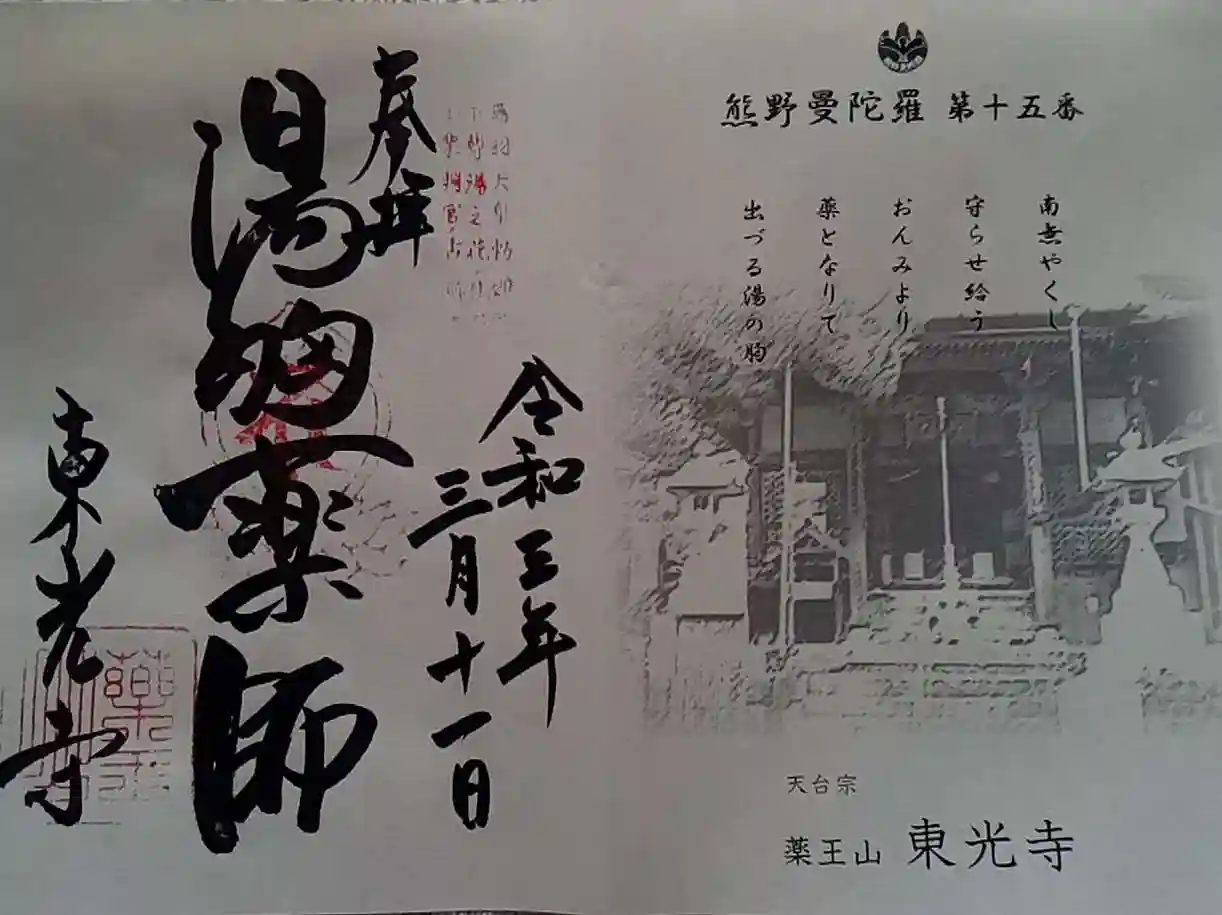 熊野曼陀羅 第十五番
南無やくし
守らせ給う
おんみより
薬となりて
出づる湯の胸
天台宗
薬王山 東光寺
奉拝
湯胸薬師
令和三年
三月十一日
東光寺